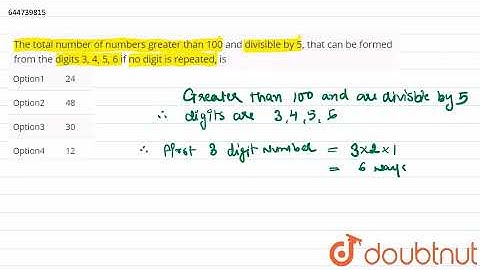 644739815
The total number of numbers greater than 100 and divisible by 5, that can be formed
from the digits 3, 4, 5, 6 if no digit is repeated, is
Option1 24
Option2 48
Option3 30
Option4 12
Greater than 100 and are divisible by 5
∴ digits are 3,4,5,6
∴ First 3 digit number = 3×2×1
= 6 ways
doubtnut